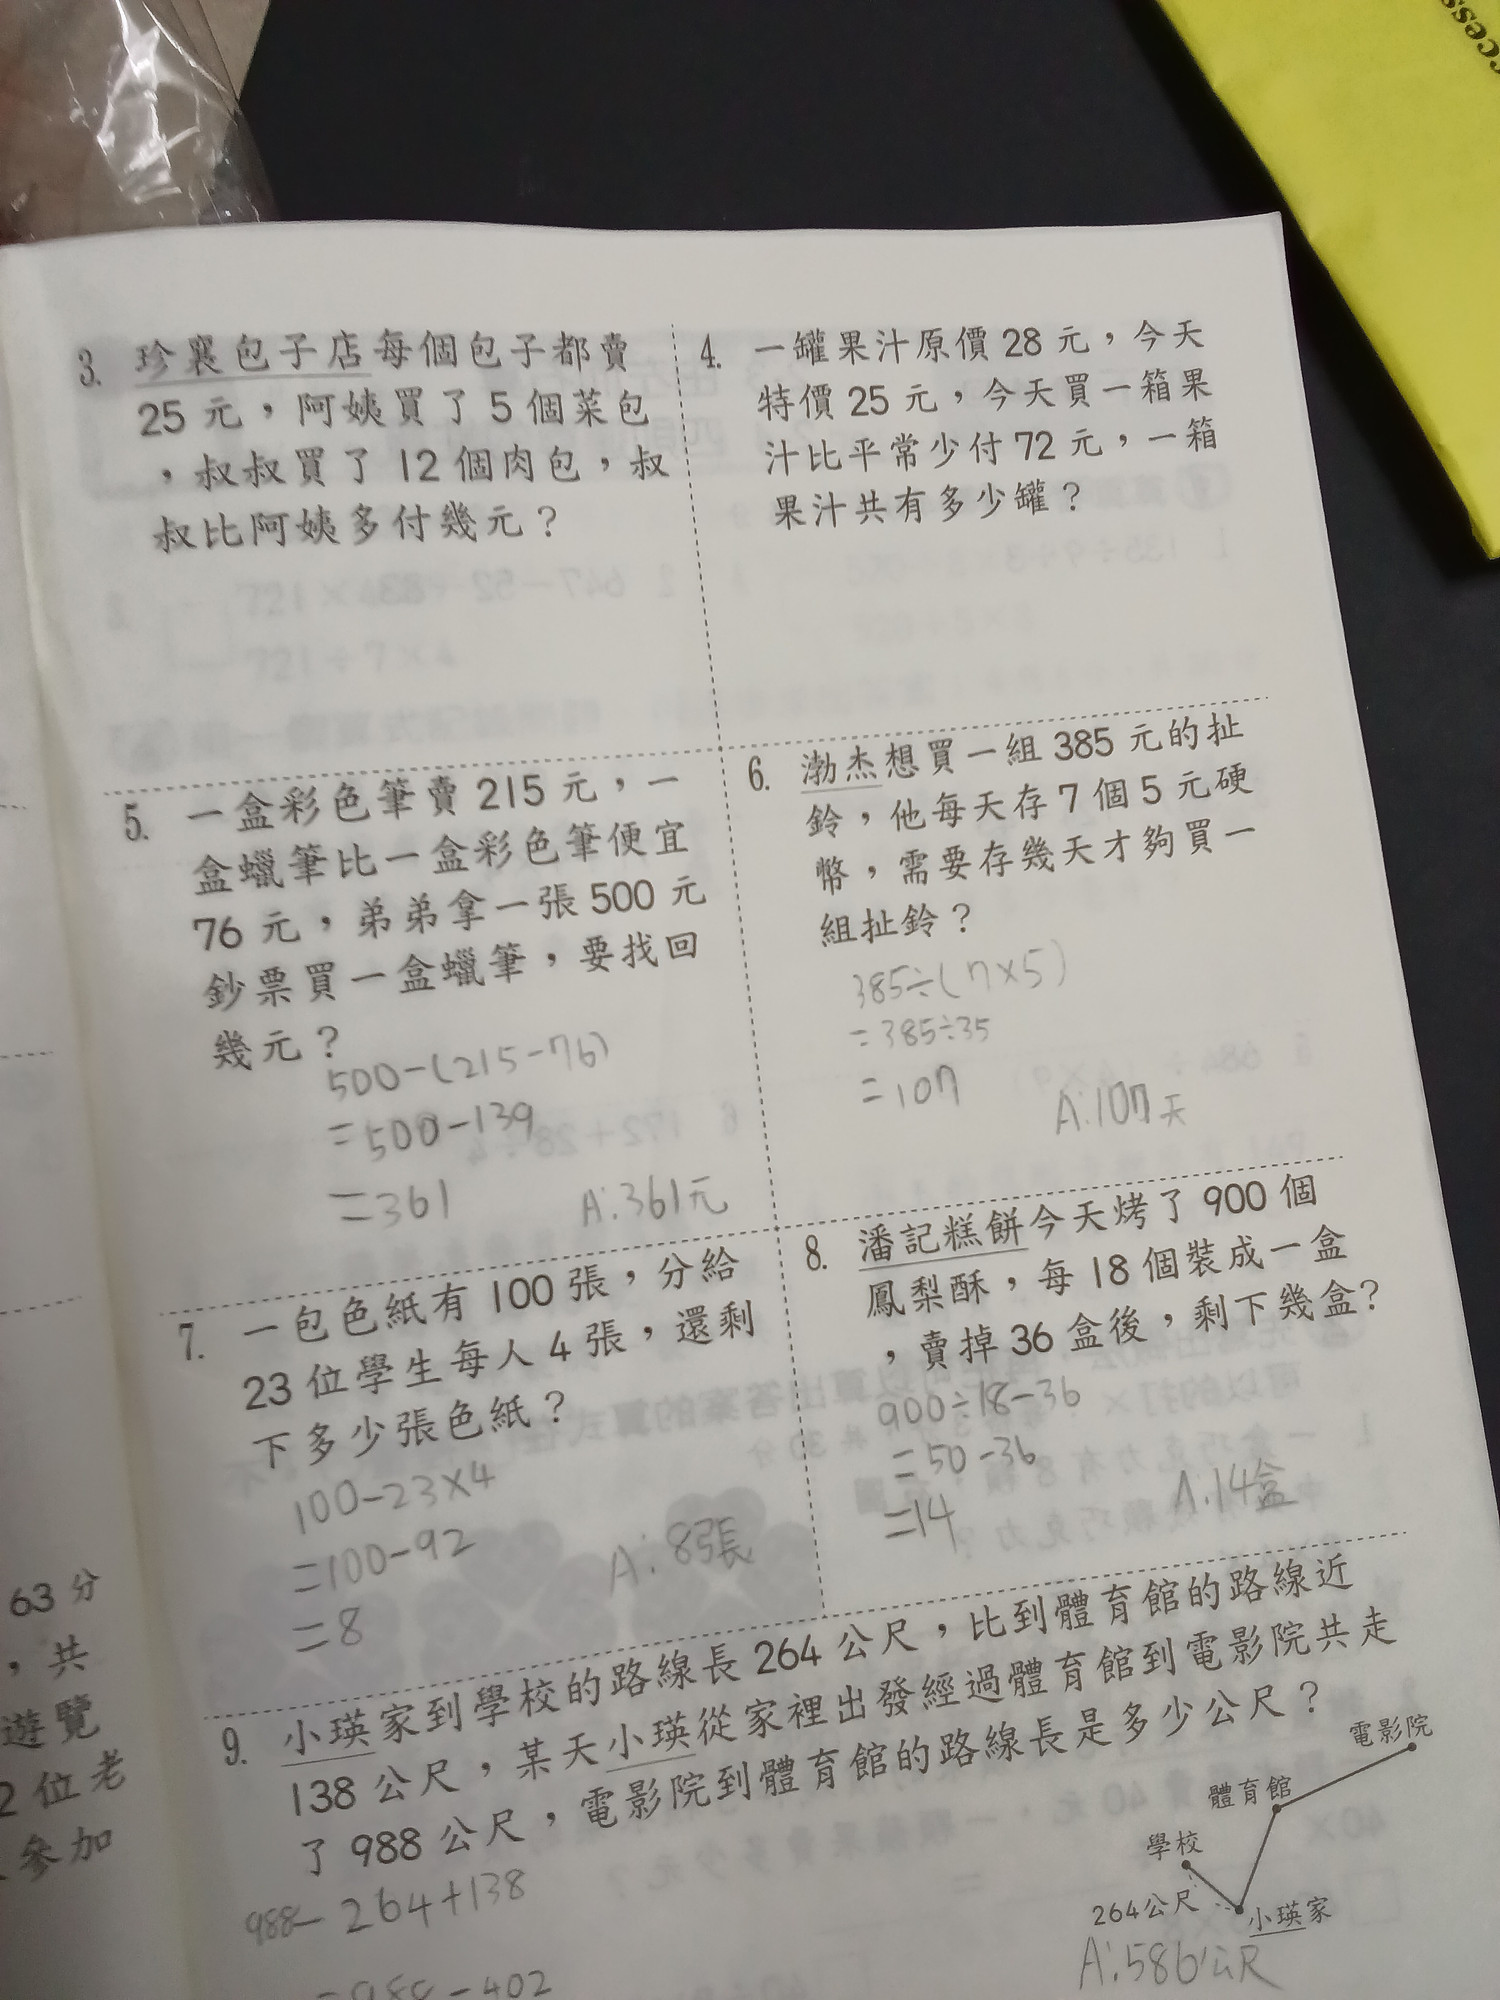 3. 珍襄包子店每個包子都賣
25 元，阿姨買了 5 個菜包
，叔叔買了 12 個肉包，叔
叔比阿姨多付幾元？
4. 一罐果汁原價 28 元，今天
特價 25 元，今天買一箱果
汁比平常少付 72 元，一箱
果汁共有多少罐？
5. 一盒彩色筆賣 215 元，一
盒蠟筆比一盒彩色筆便宜
76 元，弟弟拿一張 500 元
鈔票買一盒蠟筆，要找回
幾元？
500-(215-76)
=500-139
=361
A:361元
6. 渤杰想買一組 385 元的扯
鈴，他每天存 7 個 5 元硬
幣，需要存幾天才夠買一
組扯鈴？
385÷(7×5)
=385÷35
=107
A:107天
7. 一包色紙有 100 張，分給
23 位學生每人 4 張，還剩
下多少張色紙？
100-23×4
=100-92
=8
A:8張
8. 潘記糕餅今天烤了 900 個
鳳梨酥，每 18 個裝成一盒
，賣掉 36 盒後，剩下幾盒？
900÷18-36
=50-36
=14
A:14盒
9. 小瑛家到學校的路線長 264 公尺，比到體育館的路線近
138 公尺，某天小瑛從家裡出發經過體育館到電影院共走
了 988 公尺，電影院到體育館的路線長是多少公尺？
電影院
體育館
學校
264公尺
小瑛家
988-264+138
=988-402
A:586公尺
63 分
，共
遊覽
2 位老
參加
ccess